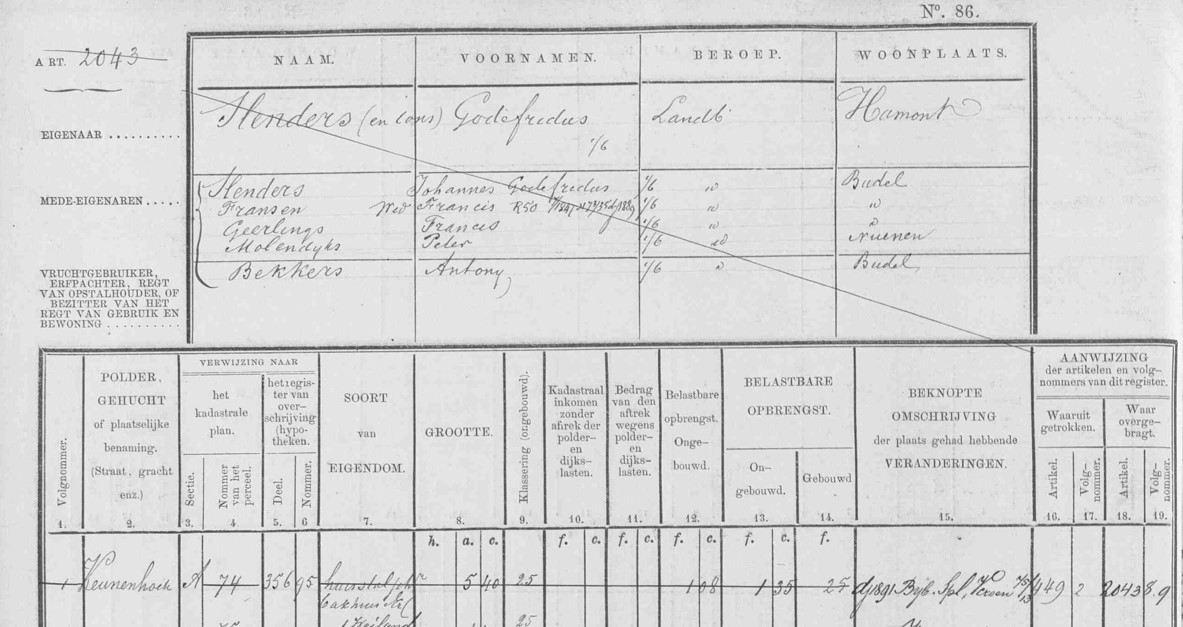 Nº. 86.
ART. 2043
NAAM. VOORNAMEN. BEROEP. WOONPLAATS.
EIGENAAR .......... Henders (en cons) Godefredus Landb Hamont
1/6
MEDE-EIGENAREN ..... Henders Johannes Godefredus 1/6 " Budel
Fransen Wed Francis R50 1/6 " "
Geerlings Francis 1/6 " "
Molendyks Peter 1/6 Nuenen
Bekkers Antony 1/6 " Budel
VRUCHTGEBRUIKER,
ERFPACHTER, REGT
VAN OPSTALHOUDER, OF
BEZITTER VAN HET
REGT VAN GEBRUIK EN
BEWONING ..........
Volgnommer.
POLDER,
GEHUCHT
of plaatselijke
benaming.
(Straat, gracht
enz.)
VERWIJZING NAAR
het
kadastrale
plan.
Sectie.
Nommer
van het
perceel.
het regis-
ter van
over-
schrijving
(hypo-
theken.
Deel.
Nommer.
SOORT
van
EIGENDOM.
GROOTTE.
Klassering (ongebouwd).
Kadastraal
inkomen
zonder
aftrek der
polder-
en
dijks-
lasten.
Bedrag
van den
aftrek
wegens
polder-
en
dijks-
lasten.
Belastbare
opbrengst.
Onge-
bouwd.
BELASTBARE
OPBRENGST.
On-
gebouwd.
Gebouwd
BEKNOPTE
OMSCHRIJVING
der plaats gehad hebbende
VERANDERINGEN.
AANWIJZING
der artikelen en volg-
nommers van dit register.
Waaruit
getrokken.
Artikel.
Volg-
nommer.
Waar
overge-
bragt.
Artikel.
Volg-
nommer.
1. 2. 3. 4. 5. 6 7. 8. 9. 10. 11. 12. 13. 14. 15. 16. 17. 18. 19.
h. a. c. f. c. f. c. f. c. f. c. f.
1 Keunenhoek A 74 356 95 huis stal 5 40 25 1 08 1 35 25 dj 1891 Bijb. Spl, 449 2 2043 8.9
bakhuis
25